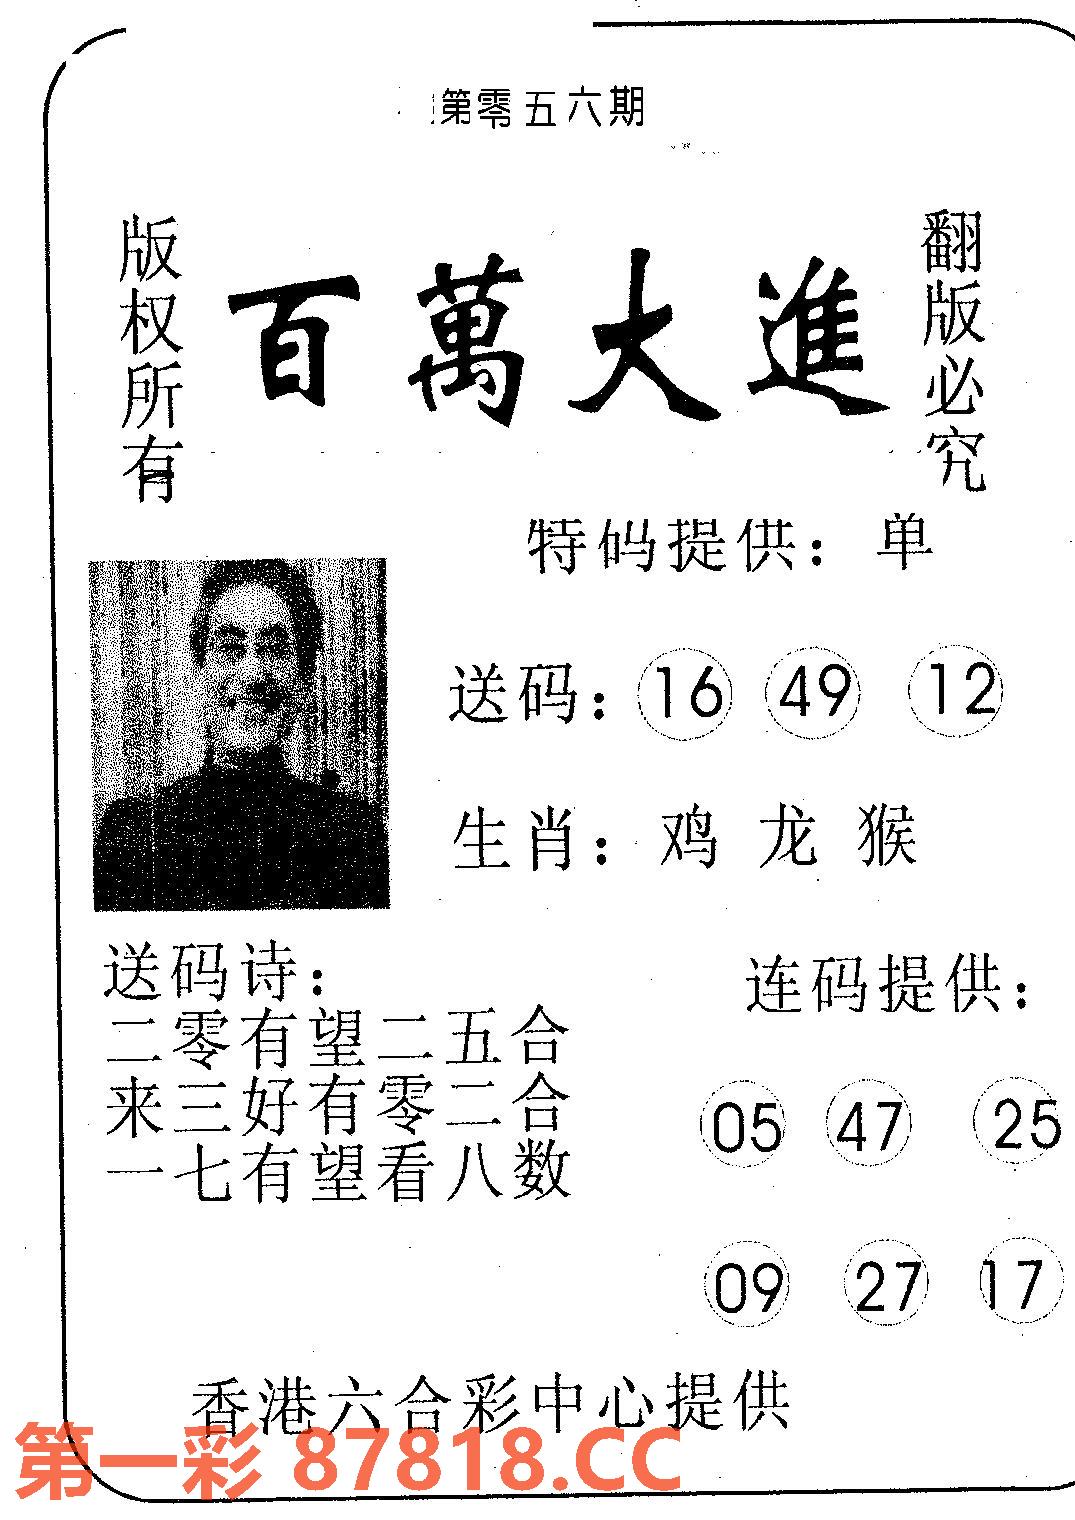 第零五六期
版权所有
百萬大進
翻版必究
特码提供：单
送码：16 49 12
生肖：鸡 龙 猴
送码诗：
二零有望二五合
来三好有零二合
一七有望看八数
连码提供：
05 47 25
09 27 17
香港六合彩中心提供
第一彩 87818.CC